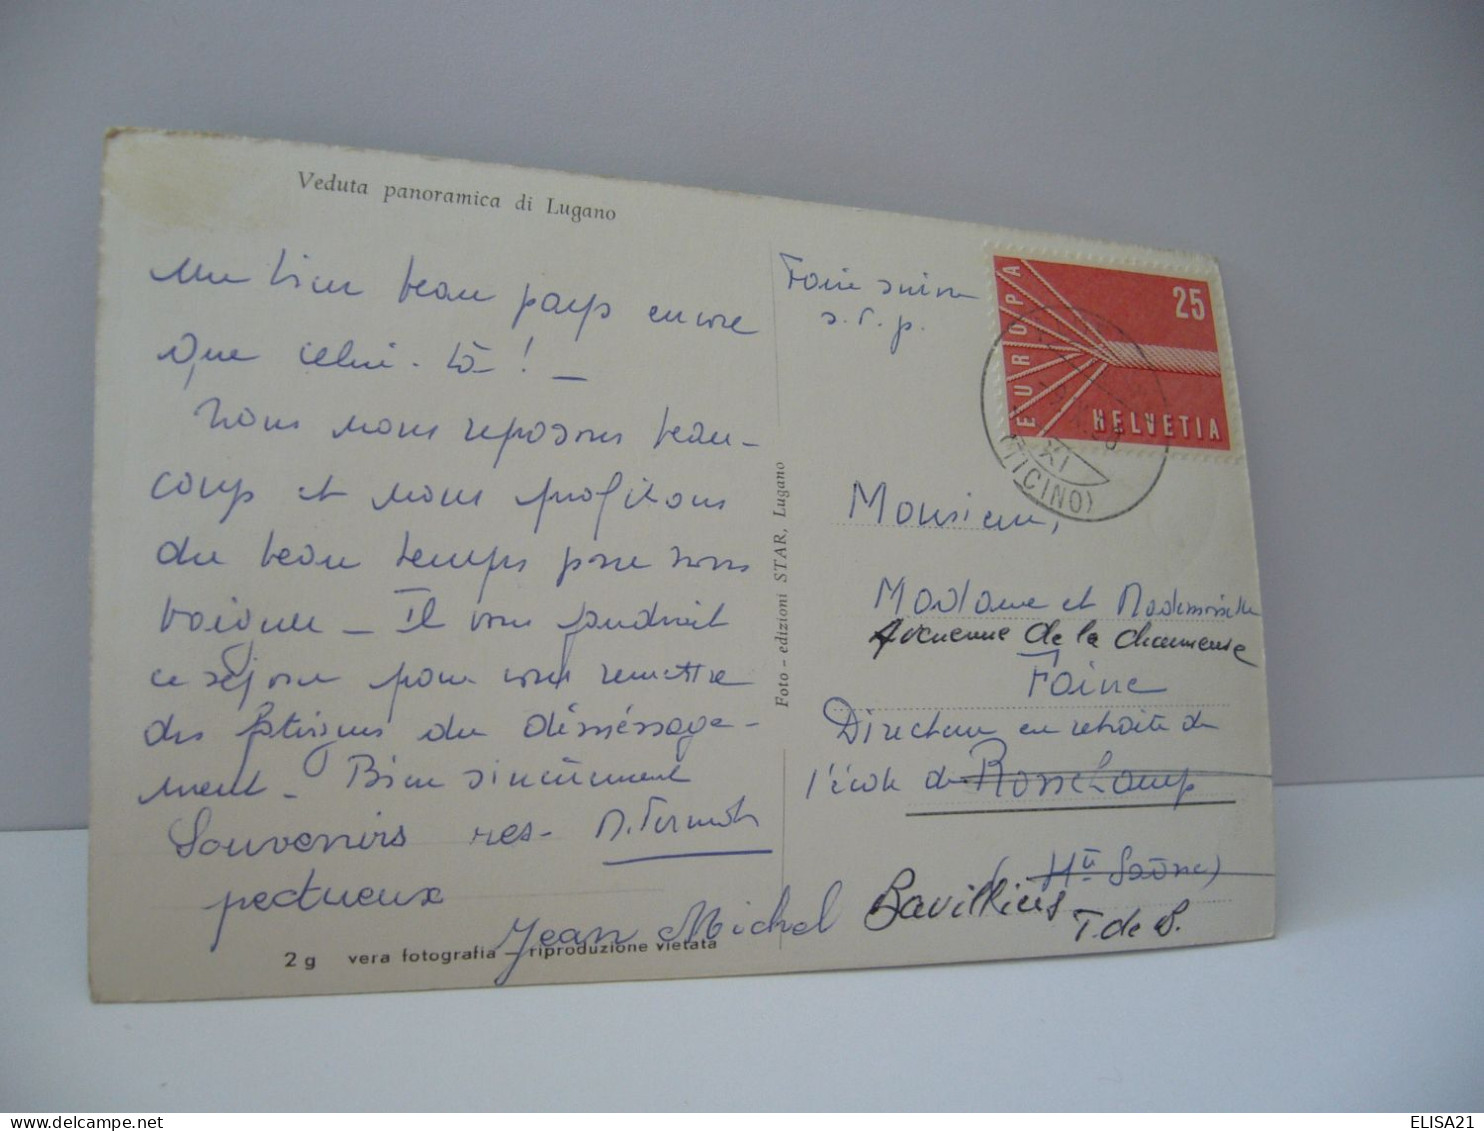 Veduta panoramica di Lugano
Un bien beau pays encore
que celui-là ! _
Nous nous reposons beau-
coup et nous profitons
du beau temps pour nous
baigner _ Il vous faudrait
ce séjour pour vous remettre
des fatigues du déménage-
ment _ Bien sincèrement
Souvenirs res-
pectueux
Jean Michel
2 g vera fotografia - riproduzione vietata
Foto - edizioni STAR, Lugano
Faire suivre
s. v. p.
EUROPA
25
HELVETIA
(TICINO)
Monsieur,
Madame et Mademoiselle
Avenue de la charmeuse
Faivre
Directeur en retraite de
l'école de Ronchamp
(Hte Saône)
Bavilliers
T. de B.
ELISA21